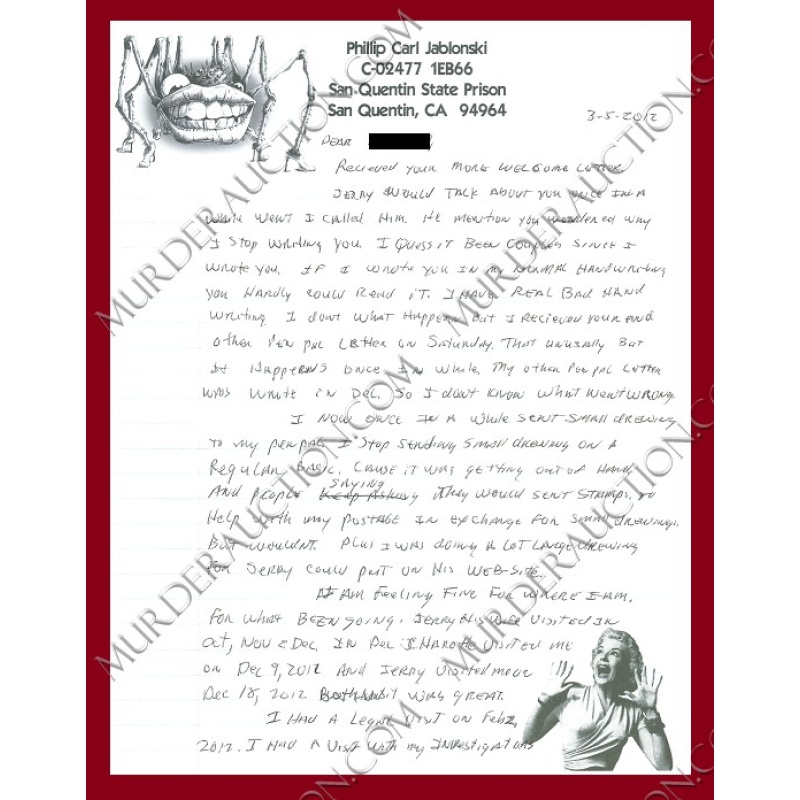 Phillip Carl Jablonski
C-02477 1EB66
San Quentin State Prison
San Quentin, CA 94964
3-5-2012
DEAR
RECIEVED YOUR MORE WELCOME LETTER.
JERRY WOULD TALK ABOUT YOU ONCE IN A
WHILE WENT I CALLED HIM. HE MENTION YOU WONDERED WHY
I STOP WRITING YOU. I QUESS IT BEEN COUPLES SINCE I
WROTE YOU. IF I WROTE YOU IN MY NORMAL HANDWRITING
YOU HARDLY COULD READ IT. I HAVE REAL BAD HAND
WRITING. I DONT WHAT HAPPEN BUT I RECIEVED YOUR AND
OTHER PEN PAL LETTER ON SATURDAY. THAT UNUSUALLY BUT
IT HAPPENS ONCE IN WHILE. MY OTHER PEN PAL LETTER
WAS WROTE IN DEC. SO I DON'T KNOW WHAT WENT WRONG.
I NOW ONCE IN A WHILE SENT SMALL DREWING
TO MY PENPAL. I STOP SENDING SMALL DREWING ON A
REGULAR BASIC. CAUSE IT WAS GETTING OUT OF HAND
SAYING
AND PEOPLE KEEP ASKING THEY WOULD SENT STAMPS. TO
HELP WITH MY POSTAGE IN EXCHANGE FOR SMALL DREWINGS.
BUT WOULDN'T. PLUS I WAS DOING A LOT LARGE DREWING
FOR JERRY COULD PUT ON HIS WEB-SITE.
I AM FEELING FINE FOR WHERE I AM.
FOR WHAT BEEN GOING. JERRY HIS WIFE VISITED IN
OCT, NOV & DEC. IN DEC VISITED ME
ON DEC 9, 2012 AND JERRY VISITED ME ON
DEC 18, 2012 VISIT WAS GREAT.
I HAD A LEGAL VISIT ON FEB 2,
2012. I HAD A VISIT WITH MY INVESTIGATIONS
MURDERAUCTION.COM